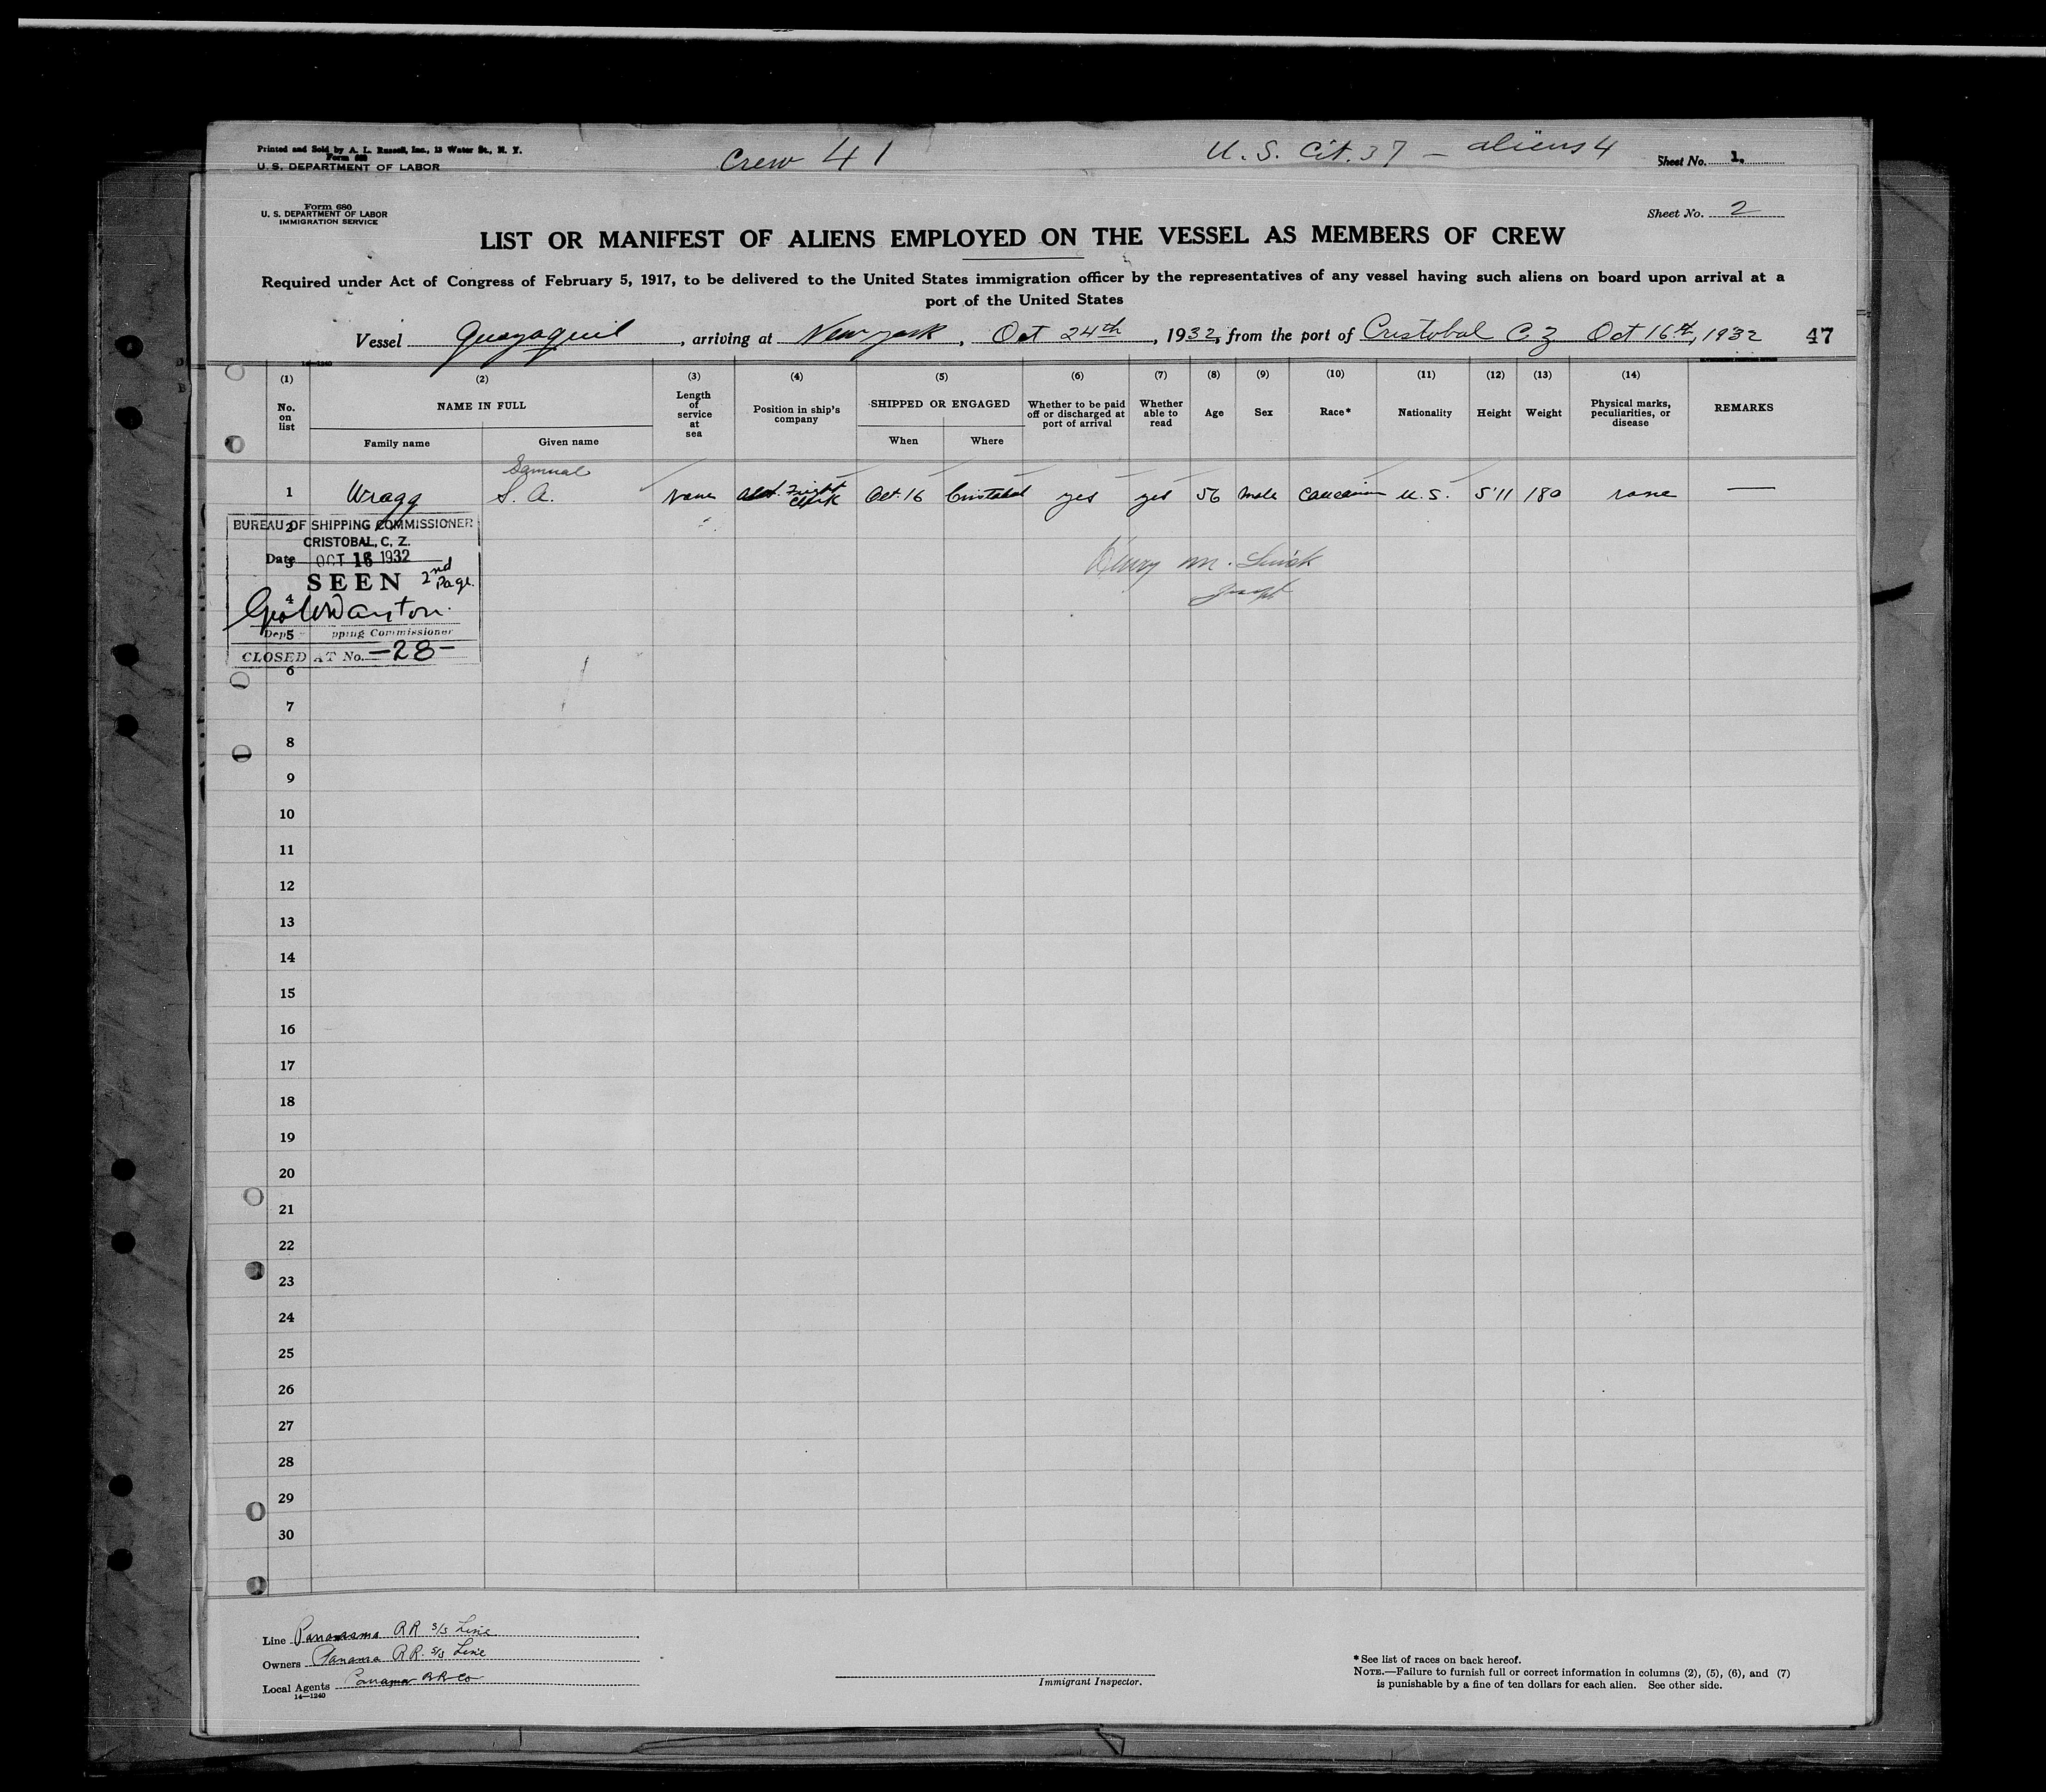 Printed and Sold by A. L. Russell, Inc., 13 Water St., N. Y.
Form 680
U. S. DEPARTMENT OF LABOR
Crew 41
U. S. Cit. 37 - aliens 4
Sheet No. 1.
Form 680
U. S. DEPARTMENT OF LABOR
IMMIGRATION SERVICE
Sheet No. 2
LIST OR MANIFEST OF ALIENS EMPLOYED ON THE VESSEL AS MEMBERS OF CREW
Required under Act of Congress of February 5, 1917, to be delivered to the United States immigration officer by the representatives of any vessel having such aliens on board upon arrival at a
port of the United States
Vessel Guayaquil, arriving at New York, Oct 24th, 1932, from the port of Cristobal C Z Oct 16th, 1932 47
14-1240
(1) (2) (3) (4) (5) (6) (7) (8) (9) (10) (11) (12) (13) (14)
No. on list
NAME IN FULL
Family name
Given name
Length of service at sea
Position in ship's company
SHIPPED OR ENGAGED
When
Where
Whether to be paid off or discharged at port of arrival
Whether able to read
Age
Sex
Race*
Nationality
Height
Weight
Physical marks, peculiarities, or disease
REMARKS
Samual
1 Wragg S. A. None Asst. Freight Clerk Oct. 16 Cristobal yes yes 56 Male Caucasian U. S. 5'11 180 none —
BUREAU OF SHIPPING COMMISSIONER
CRISTOBAL, C. Z.
Date OCT 16 1932
SEEN 2nd Page.
pping Commissioner
CLOSED AT No. -28-
Henry M.
2
3
4
5
6
7
8
9
10
11
12
13
14
15
16
17
18
19
20
21
22
23
24
25
26
27
28
29
30
Line Panama RR S/S Line
Owners Panama RR. S/S Line
Local Agents Panama RR Co
14—1240
Immigrant Inspector.
*See list of races on back hereof.
NOTE.—Failure to furnish full or correct information in columns (2), (5), (6), and (7)
is punishable by a fine of ten dollars for each alien. See other side.